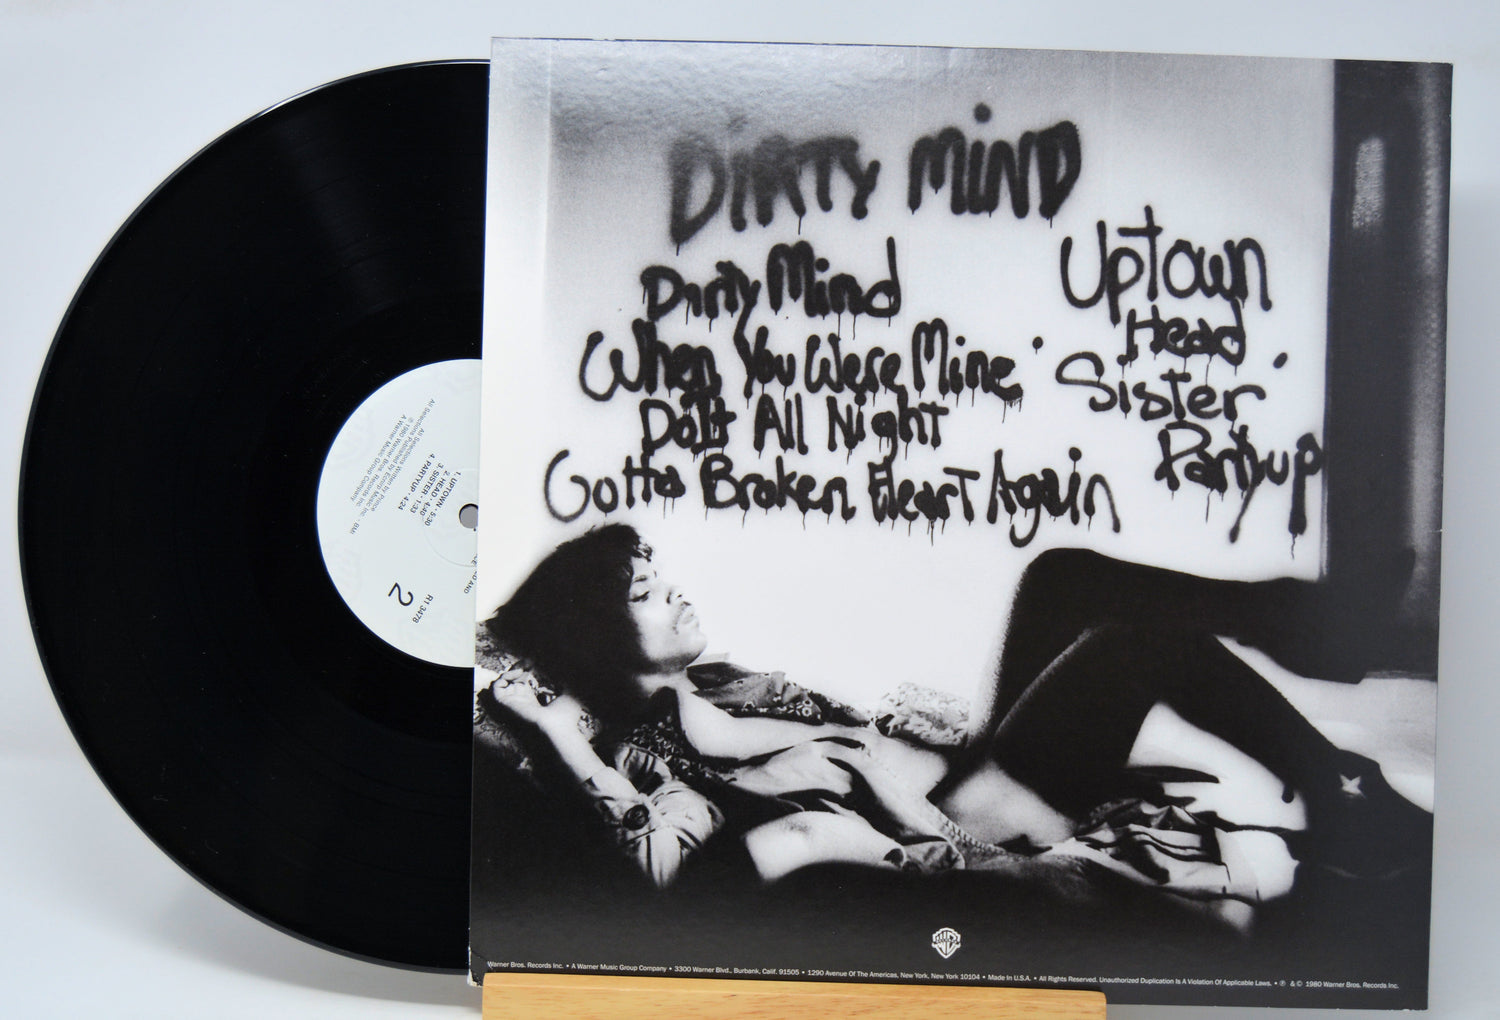 DiRTY MiND
Dirty Mind
When You Were Mine
Do It All Night
Gotta Broken Heart Again
Uptown
Head
Sister
Partyup
1. UPTOWN - 5:30
2. HEAD - 4:40
3. SISTER - 1:33
4. PARTYUP - 4:24
All Selections Written by Prince
All Selections Published by Ecnirp Music Inc. - BMI
℗ 1980 Warner Bros. Records Inc.
A Warner Music Group Company
R1 3478
2
Warner Bros. Records Inc. • A Warner Music Group Company • 3300 Warner Blvd., Burbank, Calif. 91505 • 1290 Avenue Of The Americas, New York, New York 10104 • Made In U.S.A. • All Rights Reserved. Unauthorized Duplication Is A Violation Of Applicable Laws. • ℗ & © 1980 Warner Bros. Records Inc.